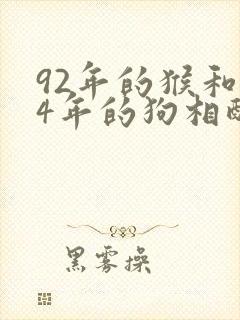 92年的猴和
4年的狗相
黑雾操